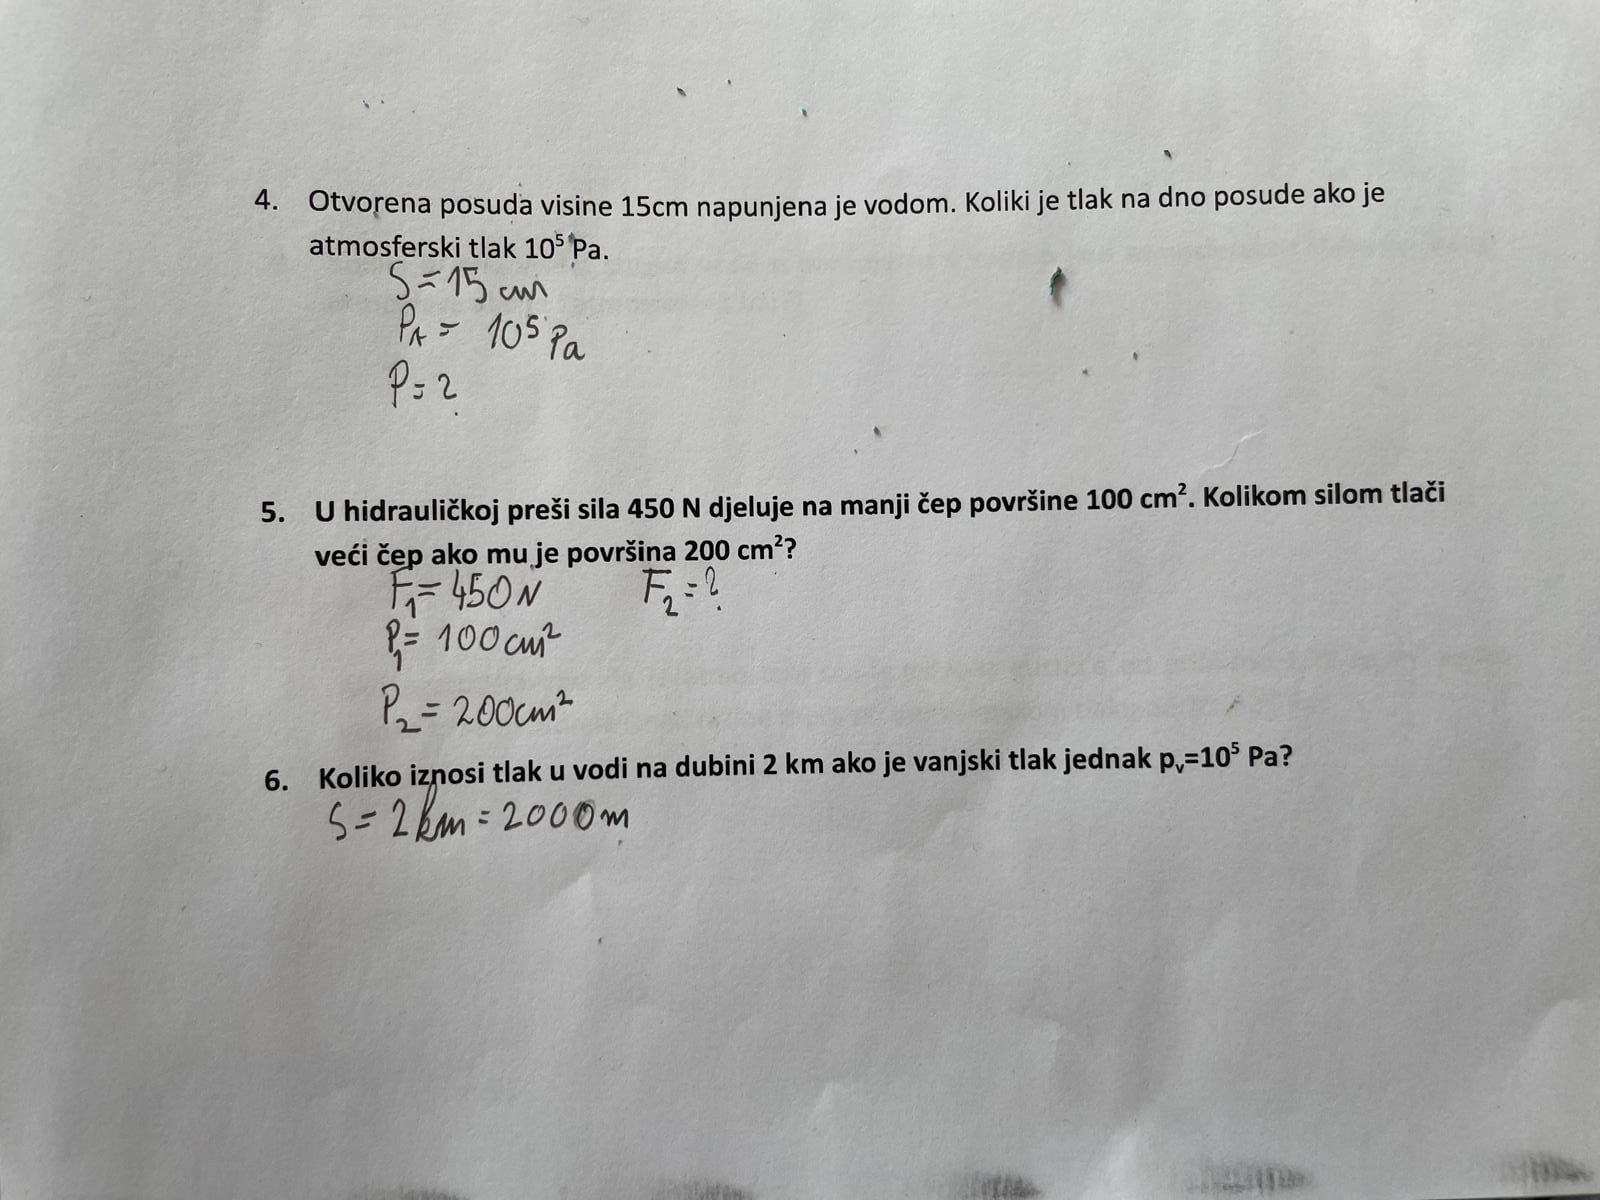 4. Otvorena posuda visine 15cm napunjena je vodom. Koliki je tlak na dno posude ako je
atmosferski tlak 10⁵ Pa.
S = 15 cm
PA = 10⁵ Pa
P = ?
5. U hidrauličkoj preši sila 450 N djeluje na manji čep površine 100 cm². Kolikom silom tlači
veći čep ako mu je površina 200 cm²?
F₁ = 450 N F₂ = ?
P₁ = 100 cm²
P₂ = 200 cm²
6. Koliko iznosi tlak u vodi na dubini 2 km ako je vanjski tlak jednak pᵥ=10⁵ Pa?
S = 2 km = 2000 m